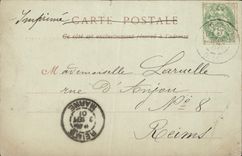 Imprimé
CARTE POSTALE
Ce côté est exclusivement réservé à l'adresse
Mademoiselle Laruelle
rue D'Anjou
No 8
Reims
REIMS
MARNE